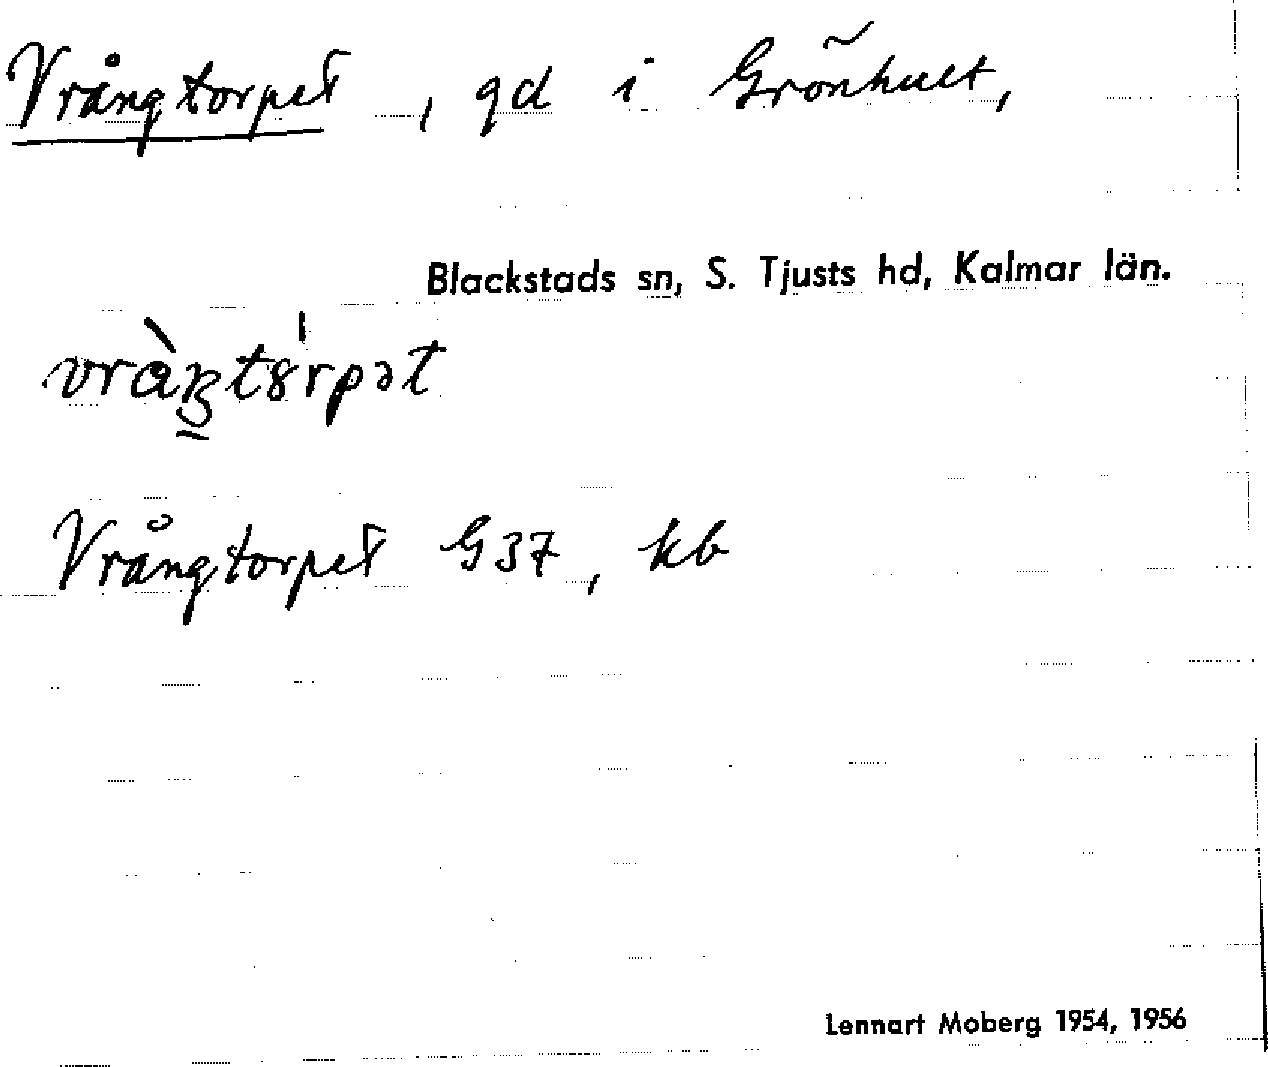 Vrångtorpet, gd i Grönhult,
Blackstads sn, S. Tjusts hd, Kalmar län.
Vrångtorpet G37, kb
Lennart Moberg 1954, 1956